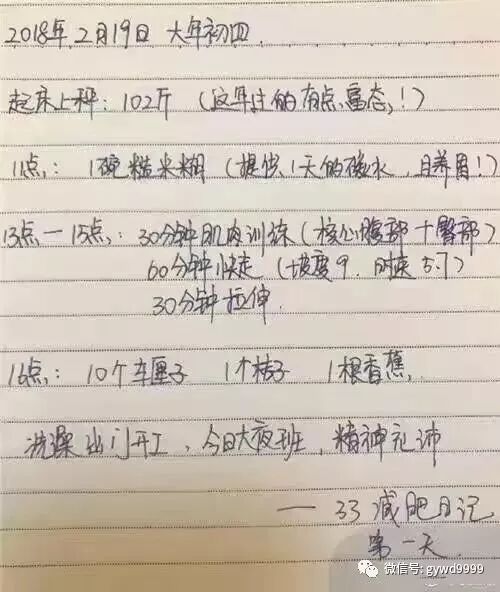 2018年2月19日 大年初四.
起床上秤: 102斤 (这年过的有点富态!)
11点: 1碗糙米糊 (提供1天的碳水, 且养胃!)
13点—15点: 30分钟肌肉训练 (核心腹部十臀部)
60分钟快走 (坡度9. 时速5.7)
30分钟拉伸.
16点: 10个车厘子 1个桔子 1根香蕉.
洗澡出门开工, 今日大夜班, 精神礼沛
— 33减肥日记
第一天.
微信号: gywd9999